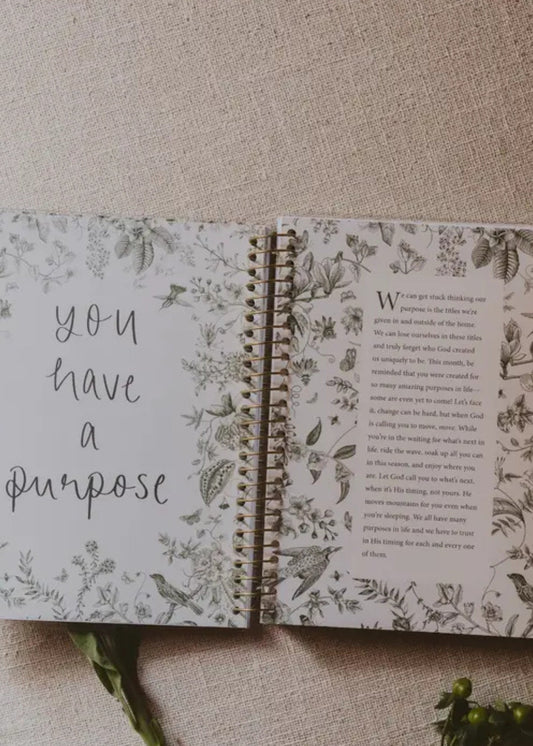 you
have
a
purpose
We can get stuck thinking our
purpose is the titles we're
given in and outside of the home.
We can lose ourselves in these titles
and truly forget who God created
us uniquely to be. This month, be
reminded that you were created for
so many amazing purposes in life—
some are even yet to come! Let's face
it, change can be hard, but when God
is calling you to move, move. While
you're in the waiting for what's next in
life, ride the wave, soak up all you can
in this season, and enjoy where you
are. Let God call you to what's next,
when it's His timing, not yours. He
moves mountains for you even when
you're sleeping. We all have many
purposes in life and we have to trust
in His timing for each and every one
of them.